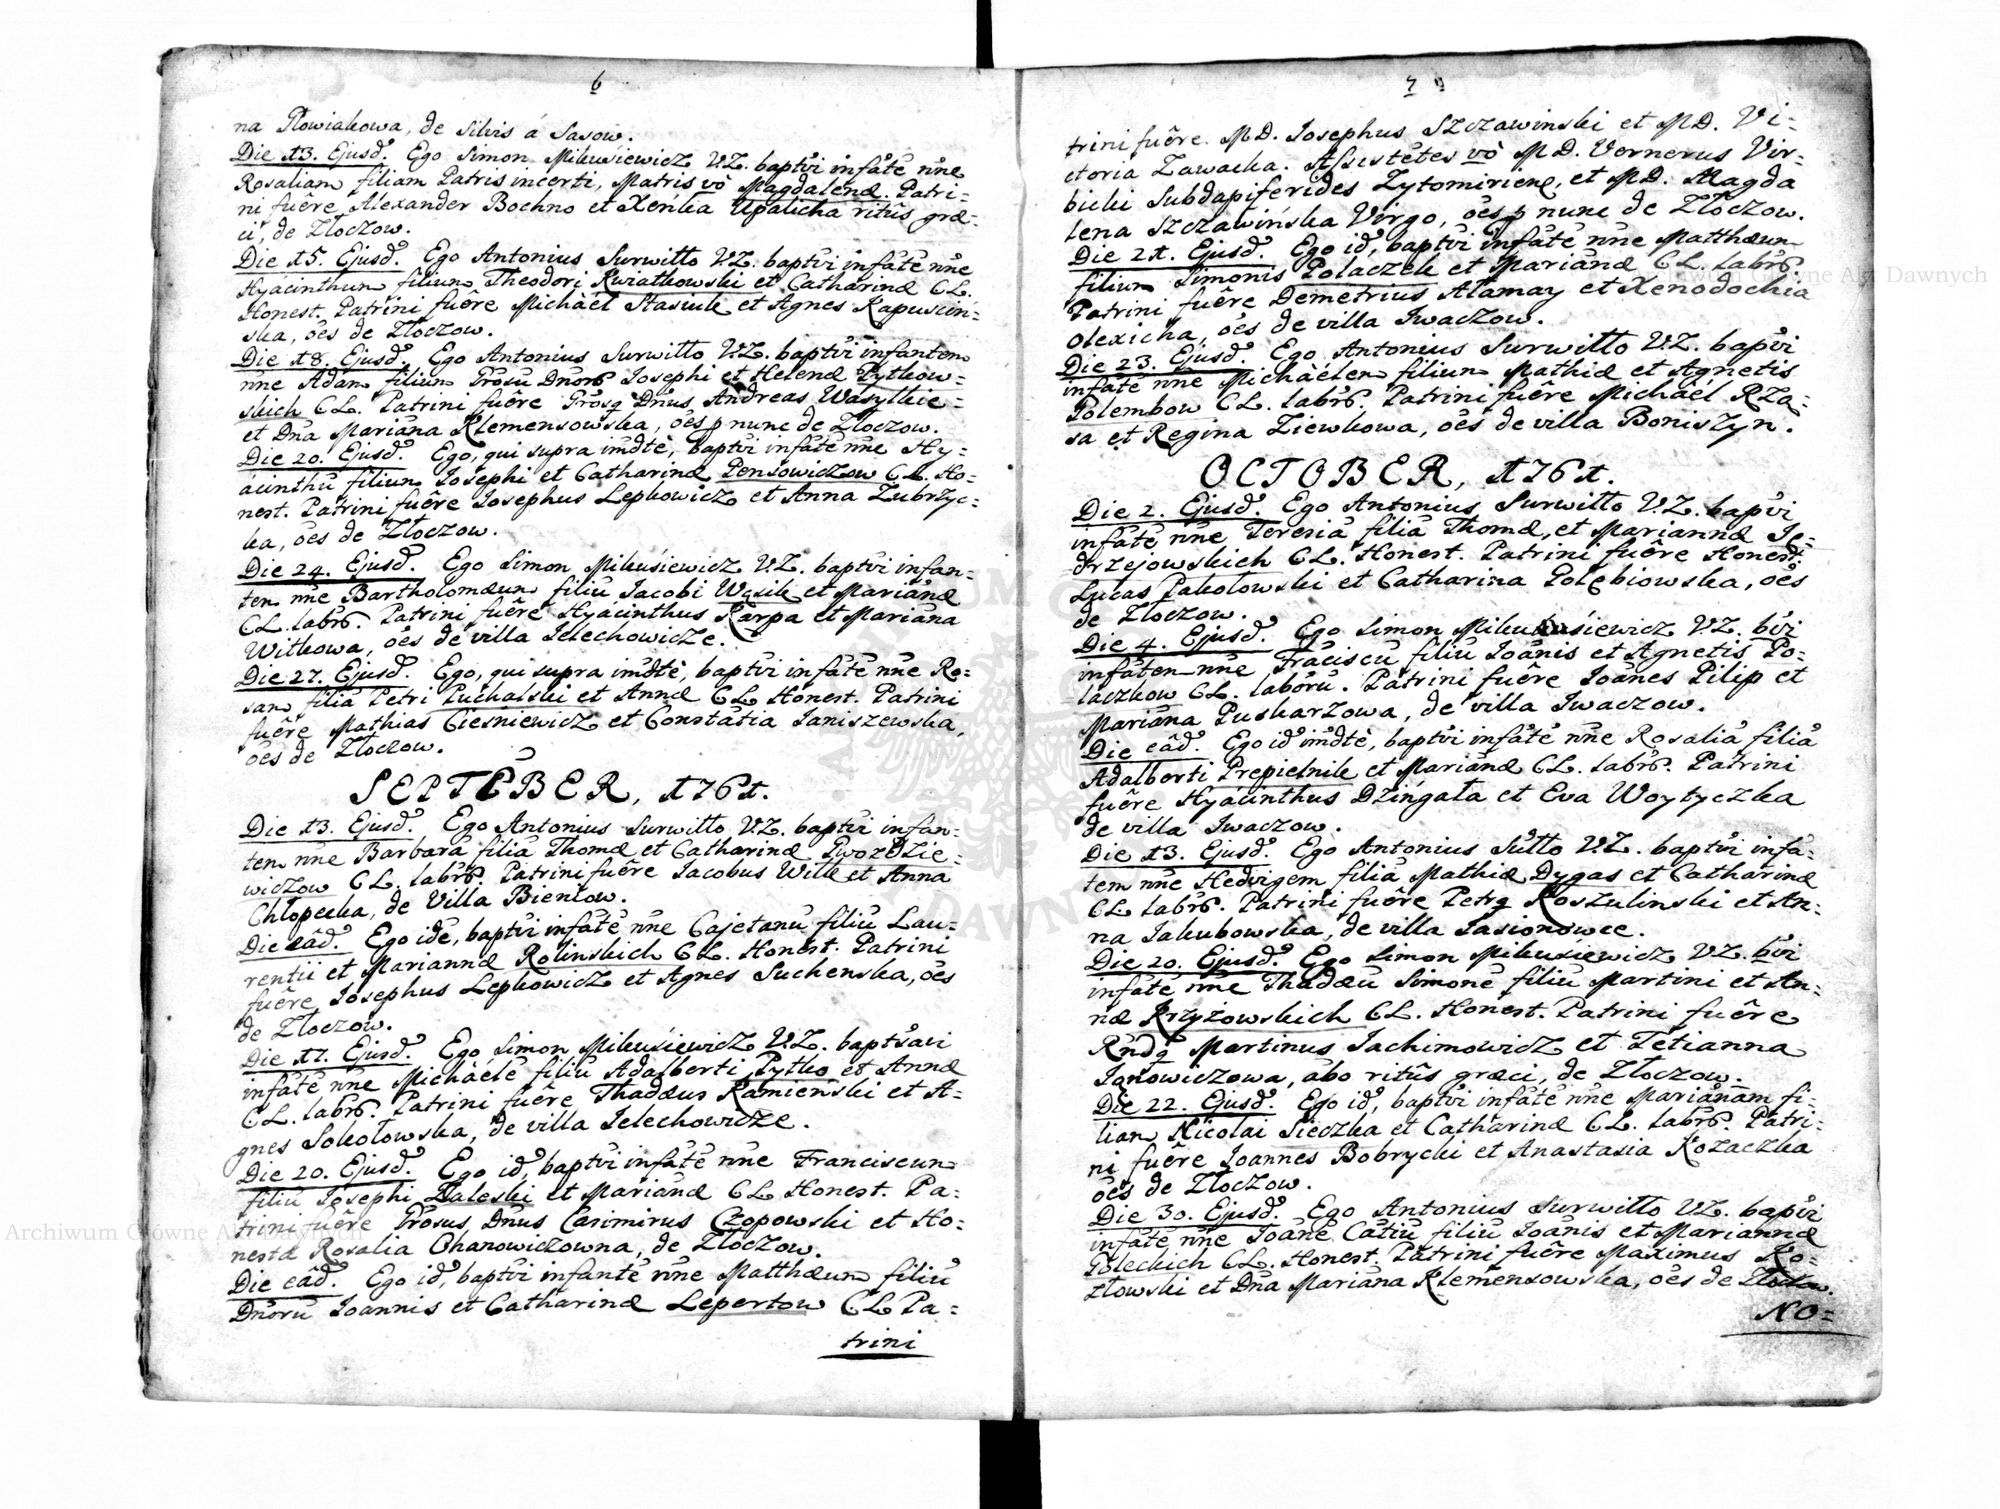 6
na Słowiakowa, de Silvis á Sasow.
Die 13. Ejusd. Ego Simon Mikusiewicz V.Z. baptvi infãtẽ nñe
Rosaliam filiam Patris incerti, Matris vò Magdalenæ. Patri=
ni fuêre Alexander Bochno et Xeńka Upalicha ritûs græ=
ci, de Złoczow.
Die 15. Ejusd. Ego Antonius Surwitto V.Z. baptvi infãtẽ nñe
Hyacinthum filium Theodori Kwiatkowski et Catharinæ CL.
Honest. Patrini fuêre Michàél Stasiuk et Agnes Kapuscin=
ska, oẽs de Złoczow.
Die 18. Ejusd. Ego Antonius Surwitto V.Z. baptvi infantem
nñe Adam filium Josephi et Helenæ Pytkow=
skich CL. Patrini fuêre Dñus Andreas Wasylkie=
et Dña Mariãna Klemensowska, oẽs p nunc de Złoczow.
Die 20. Ejusd. Ego, qui supra im̃dtè, baptvi infãtẽ nñe Hy=
ácinthũ filium Josephi et Catharinæ Pensowiczow CL. Ho=
nest. Patrini fuêre Josephus Lepkowicz et Anna Zubrzyc=
ka, oẽs de Złoczow.
Die 24. Ejusd. Ego Simon Mikusiewicz V.Z. baptvi infan=
tem nñe Bartholomæum filiũ Jacobi Wąsik et Mariãnæ
CL. labrõ. Patrini fuêre Hyácinthus Karpa et Mariãna
Witkowa, oẽs de villa Jelechowicze.
Die 27. Ejusd. Ego, qui supra im̃dtè, baptvi infãtẽ nñe Ro=
sam filiã Petri Puchalski et Annæ CL Honest. Patrini
fuêre Mathias Ciesniewicz et Constãtia Janiszewska,
oẽs de Złoczow.
SEPTẼBER, 1761.
Die 13. Ejusd. Ego Antonius Surwitto V.Z. baptvi infan=
tem nñe Barbarã filiã Thomæ et Catharinæ Gwozdzie=
wiczow CL. labrõ. Patrini fuêre Jacobus Wilk et Anna
Chłopecka, de Villa Bieniow.
Die eâd. Ego idẽ, baptvi infãtẽ nñe Cajetanũ filiũ Lau=
rentii et Mariannæ Rolinskich CL. Honest. Patrini
fuêre Josephus Lepkowicz et Agnes Suchenska, oẽs
de Złoczow.
Die 17. Ejusd. Ego Simon Mikusiewicz V.Z. baptsavi
infãtẽ nñe Michàélẽ filiũ Adalberti Pytko et Annæ
CL. labrõ. Patrini fuêre Thadæus Kamieński et A=
gnes Sokołowska, de villa Jelechowicze.
Die 20. Ejusd. Ego id, baptvi infãtẽ nñe Franciscum
filiũ Josephi Zaleski et Mariãnæ CL Honest. Pa=
trini fuêre Prosus Dñus Casimirus Czopowski et Ho=
nesta Rosalia Ohanowiczowna, de Złoczow.
Die eâd. Ego id, baptvi infantẽ nñe Matthæum filiũ
Dñorũ Joannis et Catharinæ Lepertow CL Pa=
trini
7
trini fuêre. MD. Josephus Szczawinski et MD. Vi=
ctoria Zawacka. Assistẽtes vò MD. Vernerus Vir=
bicki Subdapiferides Zytomirieñ, et MD. Magda
lena Szczawińska Virgo, oẽs p nunc de Złoczow.
Die 21. Ejusd. Ego id, baptvi infãtẽ nñe Matthæum
filium Simonis Polaczek et Mariãnæ CL. labrõ.
Patrini fuêre Demetrius Atamay et Xenodochia
Olexicha, oẽs de villa Jwaczow.
Die 23. Ejusd. Ego Antonius Surwitto V.Z. baptvi
infãtẽ nñe Michàélem filium Mathiæ et Agnetis
Golembow CL. labrõ. Patrini fuêre Michàél Rza=
sa et Regina Ziewkowa, oẽs de villa Boniszyn.
OCTOBER, 1761.
Die 2. Ejusd. Ego Antonius Surwitto V.Z. baptvi
infãtẽ nñe Teresiã filiã Thomæ, et Mariannæ Je=
drzejowskich CL. Honest. Patrini fuêre Honest
Lucas Pakotowski et Catharina Gołębiowska, oẽs
de Złoczow.
Die 4. Ejusd. Ego Simon Mikusiewicz V.Z. bvi
infãtem nñe Frãciscũ filiũ Joãnis et Agnetis Po=
laczkow CL. laborũ. Patrini fuêre Joãnes Pilip et
Mariãna Puskarzowa, de villa Jwaczow.
Die eâd. Ego id im̃dtè, baptvi infãtẽ nñe Rosaliã filiã
Adalberti Prepielnik et Mariãnæ CL. labrõ. Patrini
fuêre Hyácinthus Dzingała et Eva Woytyczka
de villa Jwaczow.
Die 13. Ejusd. Ego Antonius Sutto V.Z. baptvi infã=
tem nñe Hedvigem filiã Mathiæ Dygas et Catharinæ
CL labrõ. Patrini fuêre Petrq Koszulinski et An=
na Jakubowska, de villa Jasionowce.
Die 20. Ejusd. Ego Simon Mikusiewicz V.Z. bvi
infãtẽ nñe Thadæũ Simonẽ filiũ Martini et An=
næ Krzyżowskich CL. Honest. Patrini fuêre
Rñdq Martinus Jachimowicz et Tetianna
Jgnowiczowa, ãbo ritûs græci, de Złoczow.
Die 22. Ejusd. Ego id, baptvi infãtẽ nñe Mariãnam fi=
liam Nicolai Sieczka et Catharinæ CL. labrõ. Patri=
ni fuêre Joannes Bobrycki et Anastasia Kozaczka
oẽs de Złoczow.
Die 30. Ejusd. Ego Antonius Surwitto V.Z. baptvi
infãtẽ nñe Joãnẽ Cãtiũ filiũ Joãnis et Mariannæ
Goleckich CL. Honest. Patrini fuêre Maximus Ko=
złowski et Dña Mariãna Klemensowska, oẽs de Złoczow.
NO=
Archiwum Główne Akt Dawnych
Archiwum Główne Akt Dawnych